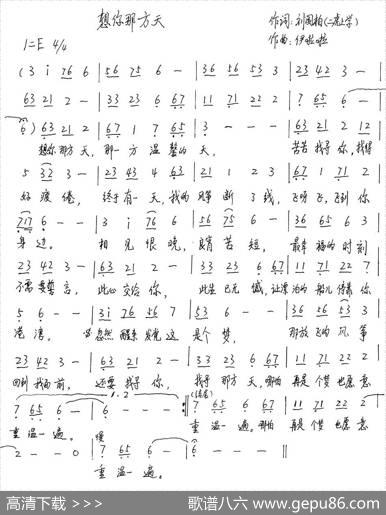 想你那方天
作词:刘国柏
1=E 4/4
作曲:伊啦啦
(3 i 76 6 | 56 75 6 - | 36 56 53 3 | 23 42 3 - |
63 21 2 - | 33 23 6 67 | 11 71 22 2 | 7 65 6 - |
6) 63 21 2 | 67 1 7 65 | 3 - - - | 63 21 2 12 |
想你那方天,那一方温馨的天, 苦苦找寻你,我得
5 32 3 - | 23 43 4 63 | 21 1 2 3 | 67 1 71 2 |
好疲倦, 终于有一天,我的风筝断了线,飞呀飞,飞到你
717 6 - - | 3 i 76 6 | 56 75 6 - | 36 65 6 3 |
身边。 相见恨晚,良宵苦短, 最幸福的时刻
23 42 3 - | 63 21 2 - | 33 23 6 67 | 11 71 22 7 |
不需要誓言, 此心交给你, 此生已无憾,让漂泊的船儿停靠你
5 6 - - | 3i 76 56 7 | 53 6 - - | 36 56 53 3 |
港湾。 忽然醒来发觉这是个梦, 那放飞的风筝
23 42 3 - | 63 21 2 - | 33 23 6 67 | 11 71 22 2 |
回到我面前, 还要找寻你, 找寻那方天,哪怕再是个梦也愿意
1.2
7 65 6 - | 6 - - - :‖ 7 65 6 67 | 11 71 22 2 |
重温一遍。 重温一遍。哪怕再是个梦也愿意
2 - - 0 | 7 65 6 - | 6 - - - ‖
重温一遍。
高清下载 >>>
歌谱八六 www.gepu86.com